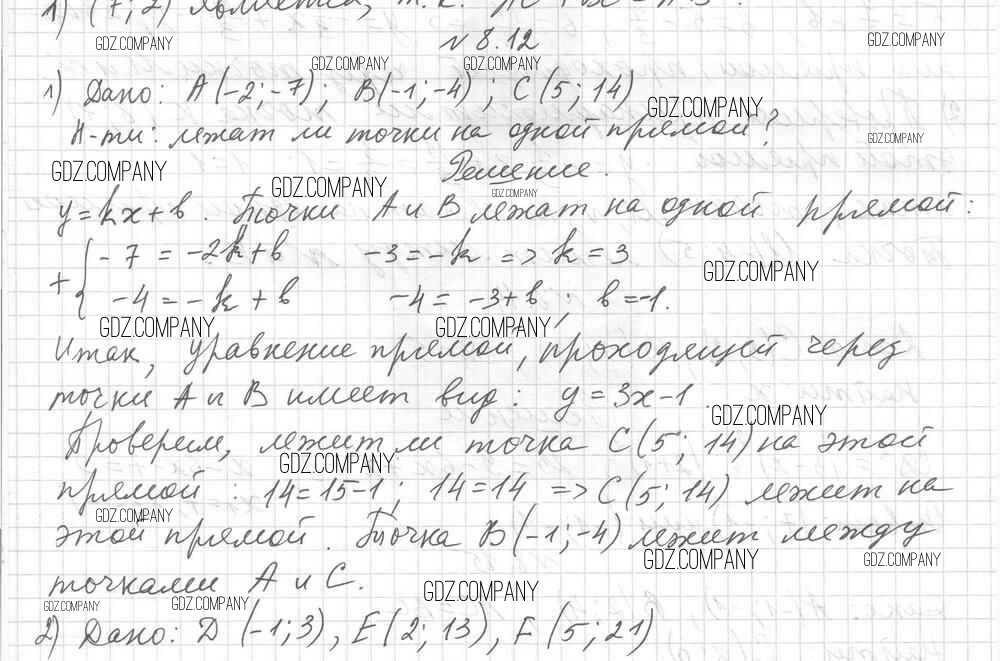 1) (7; 2) является, т.к.
GDZ.COMPANY
№ 8.12
GDZ.COMPANY
GDZ.COMPANY GDZ.COMPANY
1) Дано: A(-2; -7); B(-1; -4); C(5; 14)
GDZ.COMPANY
Н-ти: лежат ли точки на одной прямой?
GDZ.COMPANY
GDZ.COMPANY
Решение.
GDZ.COMPANY
GDZ.COMPANY
y=kx+b. Точки A и B лежат на одной прямой:
-7 = -2k+b -3=-k => k=3
+{
GDZ.COMPANY
-4=-k+b -4= -3+b; b=-1.
GDZ.COMPANY GDZ.COMPANY
Итак, уравнение прямой, проходящей через
точки A и B имеет вид: y=3x-1.
GDZ.COMPANY
Проверим, лежит ли точка C(5; 14) на этой
GDZ.COMPANY
прямой: 14=15-1; 14=14 => C(5; 14) лежит на
GDZ.COMPANY
этой прямой. Точка B(-1; -4) лежит между
GDZ.COMPANY GDZ.COMPANY
точками A и C.
GDZ.COMPANY
GDZ.COMPANY GDZ.COMPANY
2) Дано: D (-1; 3), E(2; 13), F(5; 21)